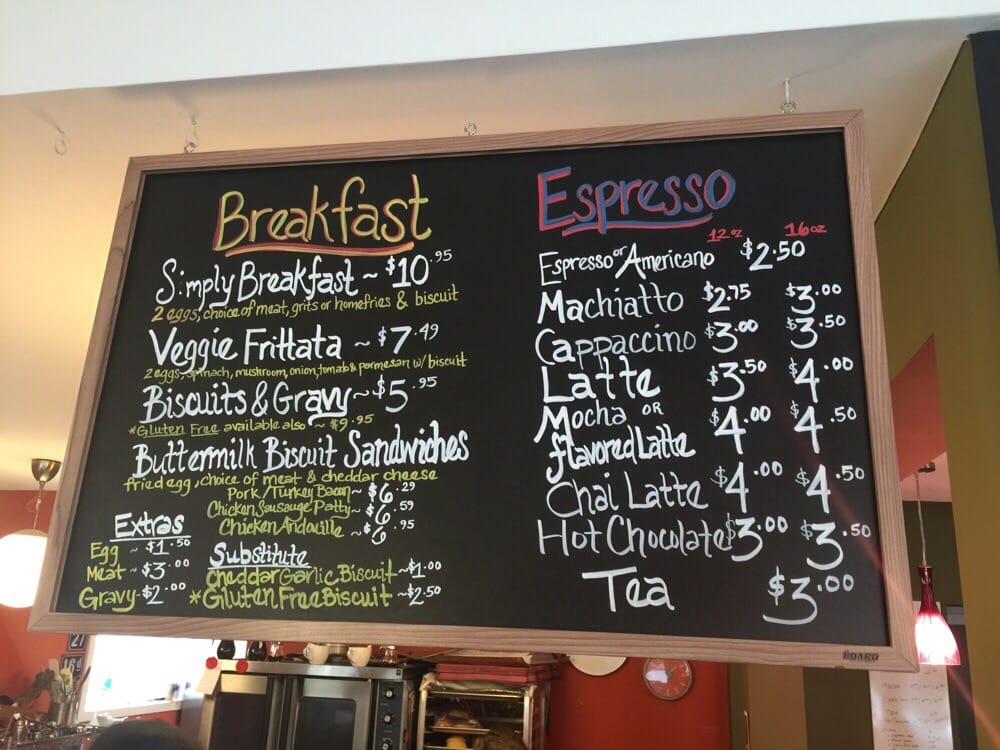 Breakfast
Simply Breakfast ~ $10.95
2 eggs, choice of meat, grits or homefries & biscuit
Veggie Frittata ~ $7.49
2 eggs, spinach, mushroom, onion, tomato & parmesan w/ biscuit
Biscuits & Gravy ~ $5.95
*Gluten Free available also ~ $9.95
Buttermilk Biscuit Sandwiches
fried egg, choice of meat & cheddar cheese
Pork/Turkey Bacon ~ $6.29
Chicken Sausauge Patty ~ $6.59
Chicken Andouille ~ $6.95
Extras
Egg ~ $1.50
Meat ~ $3.00
Gravy ~ $2.00
Substitute
Cheddar Garlic Biscuit ~ $1.00
*Gluten Free Biscuit ~ $2.50
Espresso
12oz 16oz
Espresso or Americano $2.50
Machiatto $2.75 $3.00
Cappaccino $3.00 $3.50
Latte $3.50 $4.00
Mocha OR
flavored Latte $4.00 $4.50
Chai Latte $4.00 $4.50
Hot Chocolate $3.00 $3.50
Tea $3.00
BOARD